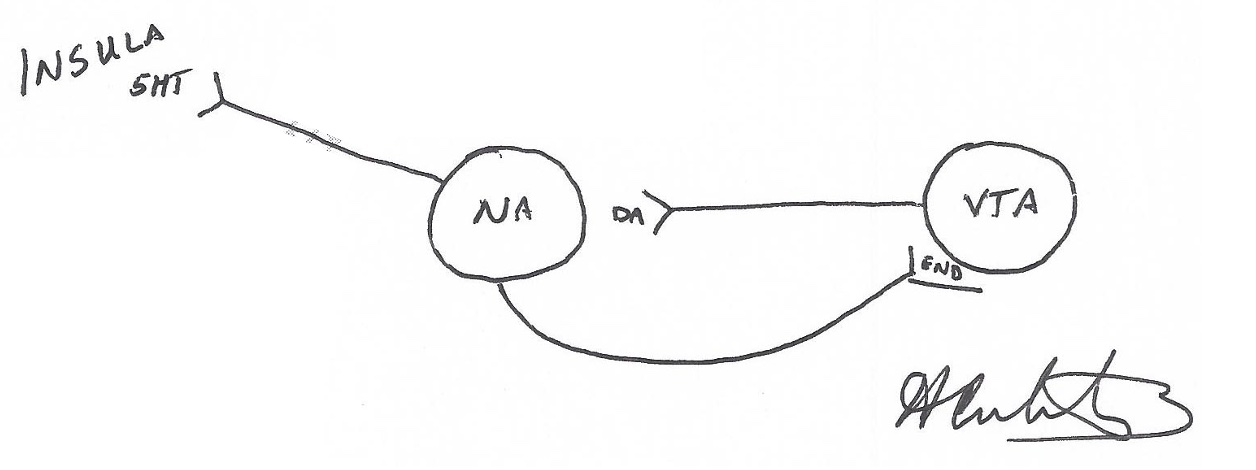 INSULA
5HT
NA
DA
VTA
END